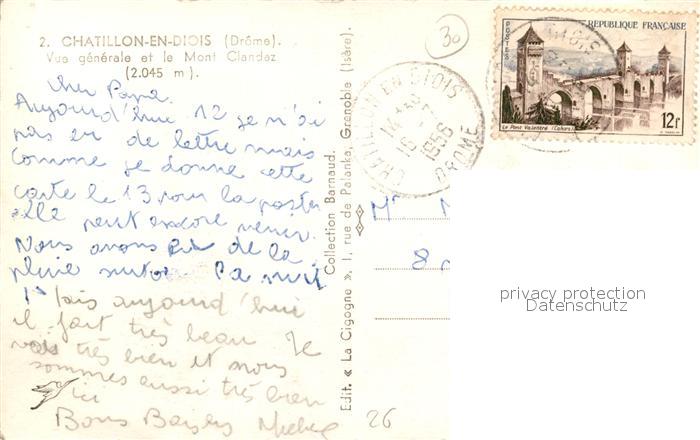 2. CHATILLON-EN-DIOIS (Drôme).
Vue générale et le Mont Glandaz
(2.045 m).
30
Cher Papa.
Aujourd'hui 12 je n'ai
pas eu de lettre mais
comme je donne cette
carte le 13 pour la poster
elle peut encore venir.
Nous avons eu de la
pluie surtout la nuit
Mais aujourd'hui
il fait très beau. Je
vais très bien et nous
sommes aussi très bien
ici
Bons Baisers Michel
26
Edit. « La Cigogne », 1, rue de Palanka, Grenoble (Isère).
Collection Barnaud.
CHATILLON EN DIOIS
16
1956
DROME
POSTES
REPUBLIQUE FRANÇAISE
12f
Le Pont Valentré (Cahors)
Mr
8
privacy protection
Datenschutz